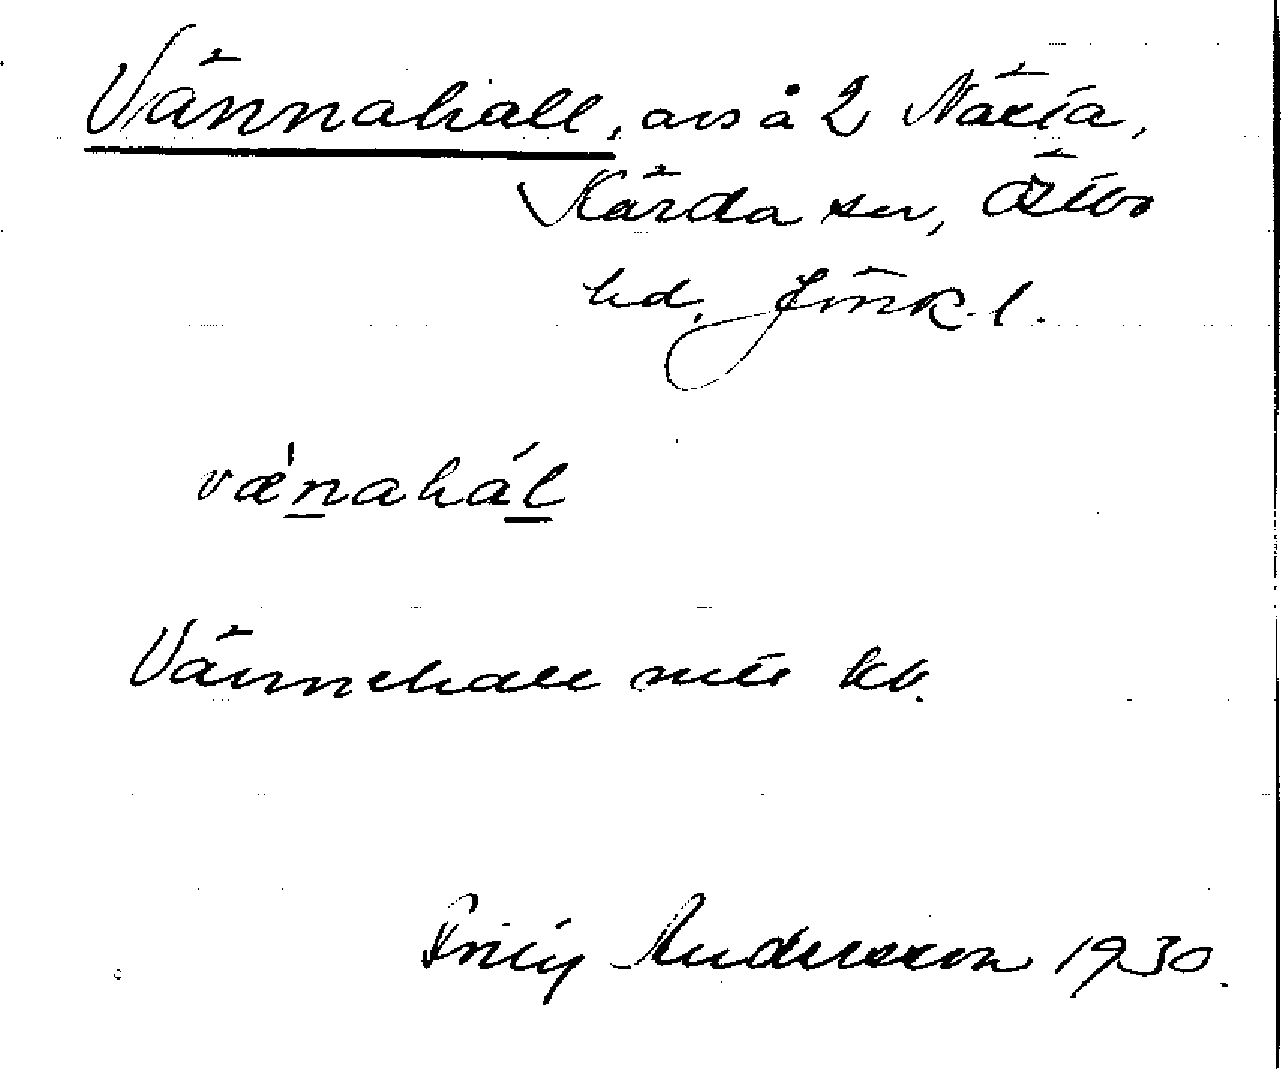 Vännahall, avs å 2 Närla,
Kärda sn, Östbo
hd, Jönk. l.
vænahál
Vännehall mtl kb.
Emily Andersson 1930.